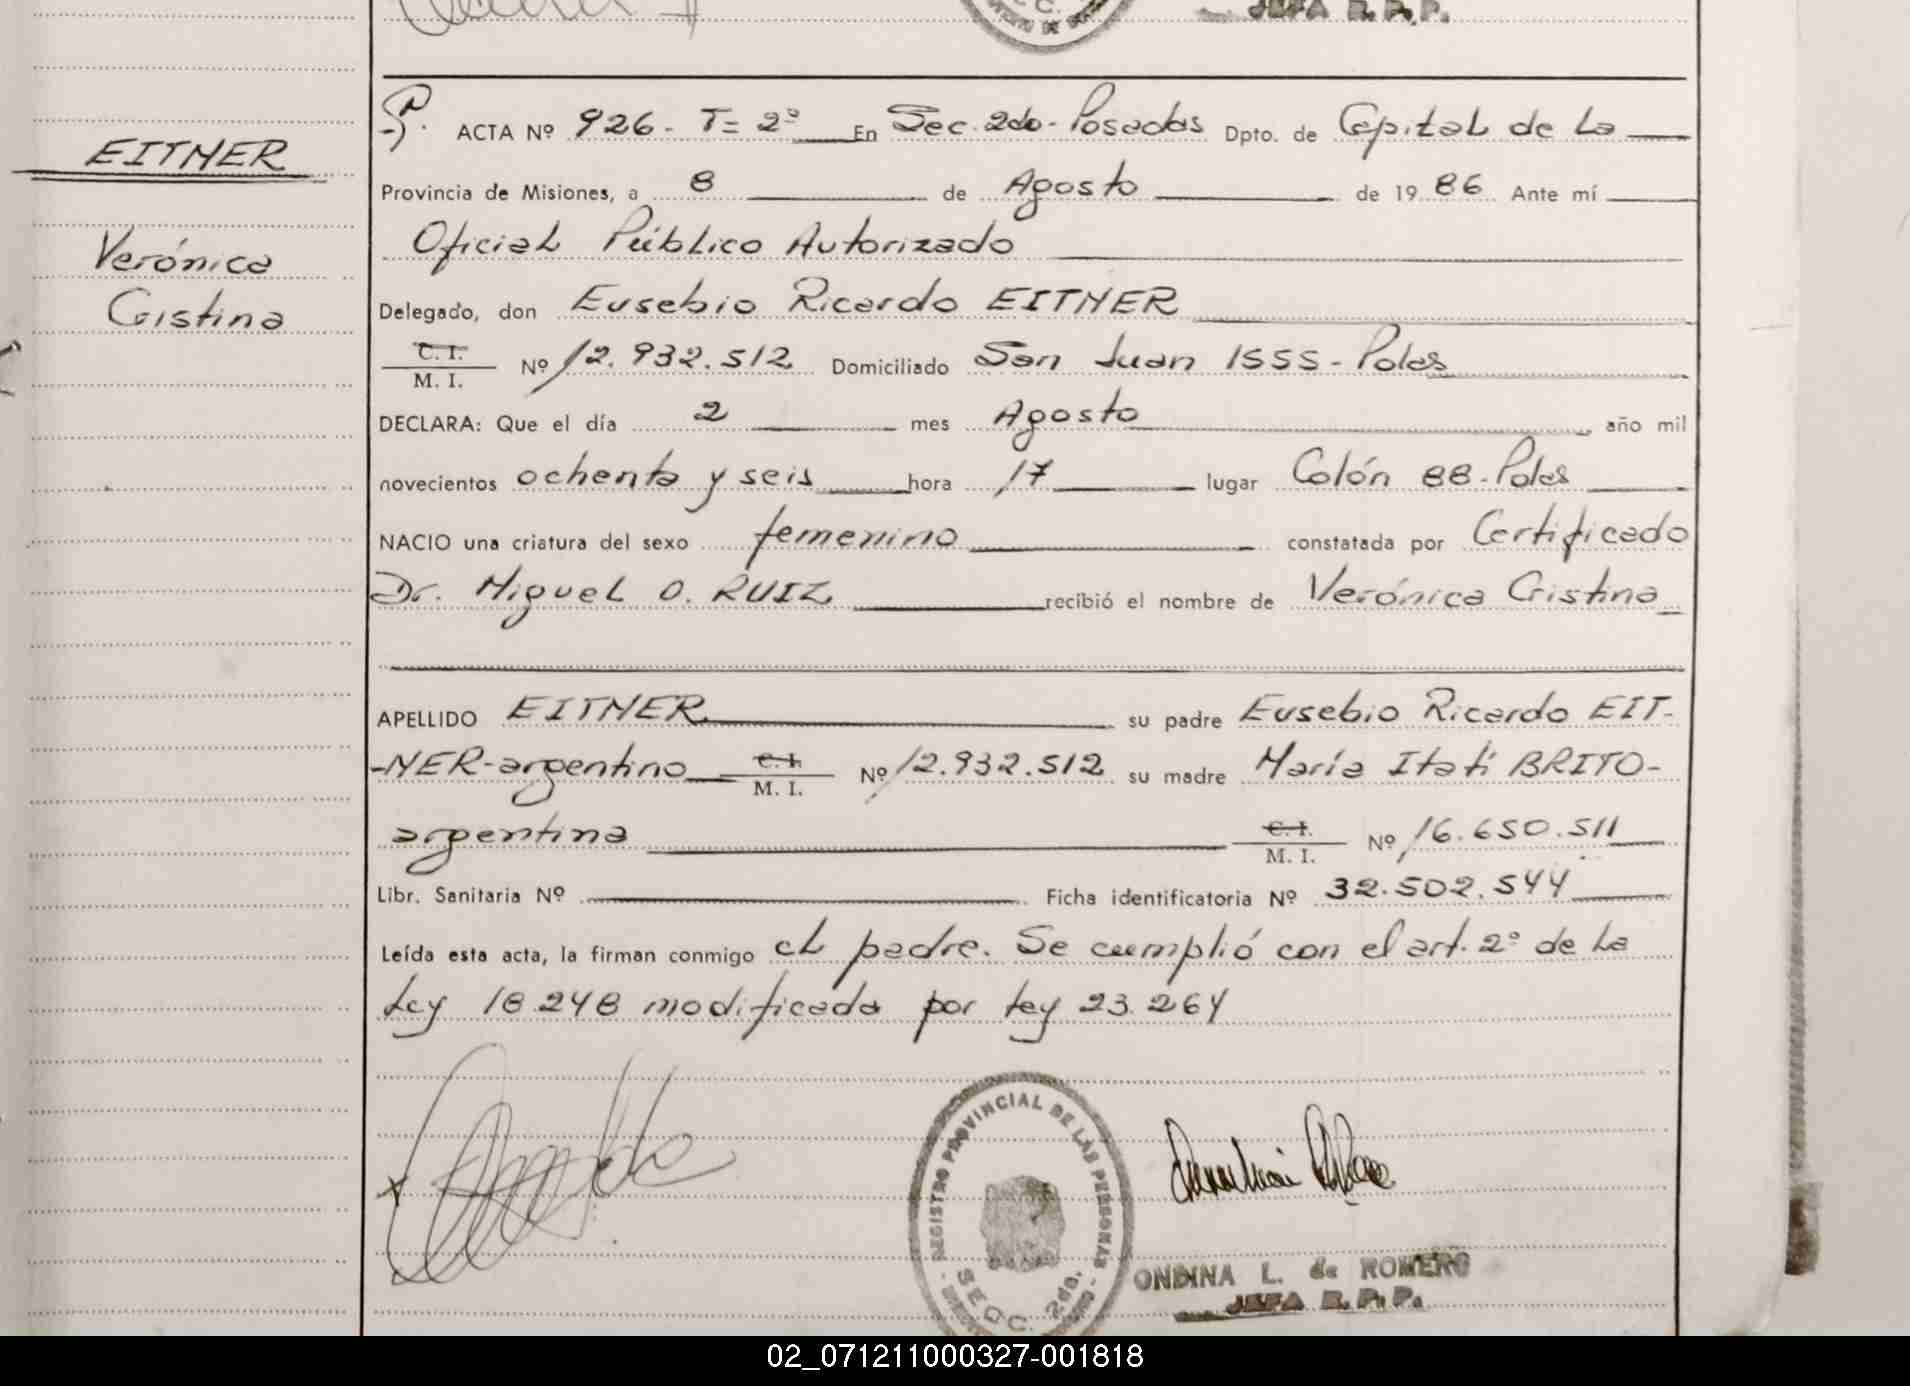 JEFA R.P.P.
ACTA Nº 926 - T= 2º En Sec. 2do - Posadas Dpto. de Capital de La
EITNER
Provincia de Misiones, a 8 de Agosto de 1986 Ante mí
Verónica
Oficial Público Autorizado
Cristina
Delegado, don Eusebio Ricardo EITNER
C. I.
M. I. Nº 12.932.512 Domiciliado San Juan 1555 - Pdas
DECLARA: Que el día 2 mes Agosto año mil
novecientos ochenta y seis hora 17 lugar Colón 88 - Pdas
NACIO una criatura del sexo femenino constatada por Certificado
Dr. Miguel O. RUIZ recibió el nombre de Verónica Cristina
APELLIDO EITNER su padre Eusebio Ricardo EIT-
-NER - argentino C. I. M. I. Nº 12.932.512 su madre María Itatí BRITO -
argentina C. I. M. I. Nº 16.650.511
Libr. Sanitaria Nº Ficha identificatoria Nº 32.502.544
Leída esta acta, la firman conmigo el padre. Se cumplió con el art. 2º de la
Ley 18.248 modificada por ley 23.264
REGISTRO PROVINCIAL DE LAS PERSONAS
SECC. 2da.
ONDINA L. de ROMERO
JEFA R.P.P.
02_071211000327-001818